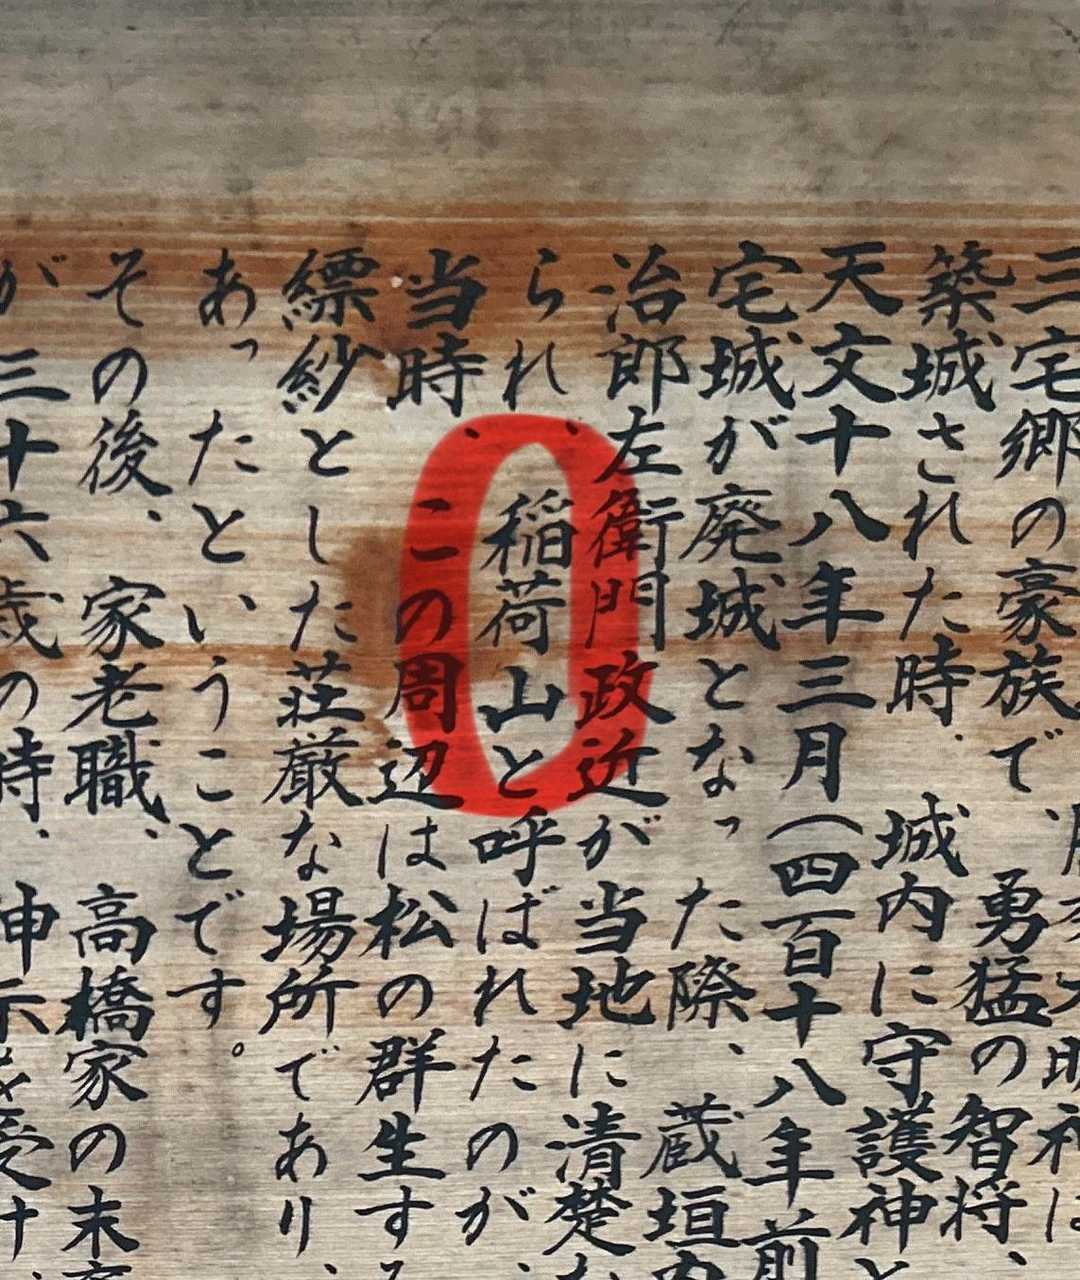 三宅郷の豪族で、勇猛の智将、
築城された時、城内に守護神と
天文十八年三月（四百十八年前
宅城が廃城となった際、蔵垣内
治郎左衛門政近が当地に清楚な
られ、稲荷山と呼ばれたのが、
当時、この周辺は松の群生する
縹紗とした荘厳な場所であり、
あったということです。
その後、家老職、高橋家の末
が三十六歳の時、神示を受け